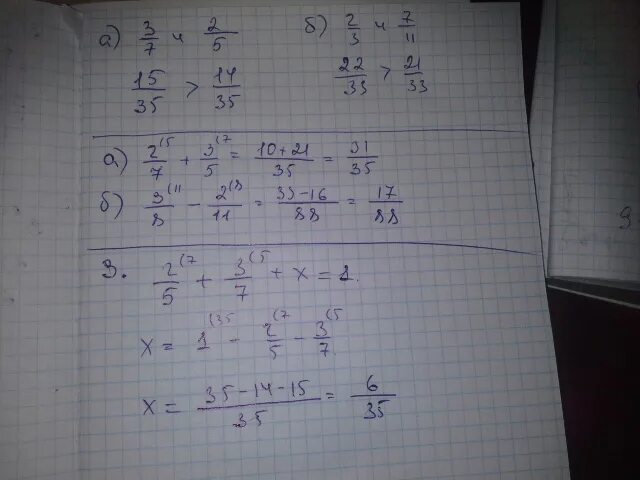 а) 3/7 и 2/5
15/35 > 14/35
б) 2/3 и 7/11
22/33 > 21/33
а) 2(5/7 + 3(7/5 = 10+21/35 = 31/35
б) 3(11/8 - 2(8/11 = 33-16/88 = 17/88
3. 2(7/5 + 3(5/7 + x = 1.
x = 1(35 - 2(7/5 - 3(5/7
x = 35-14-15/35 = 6/35